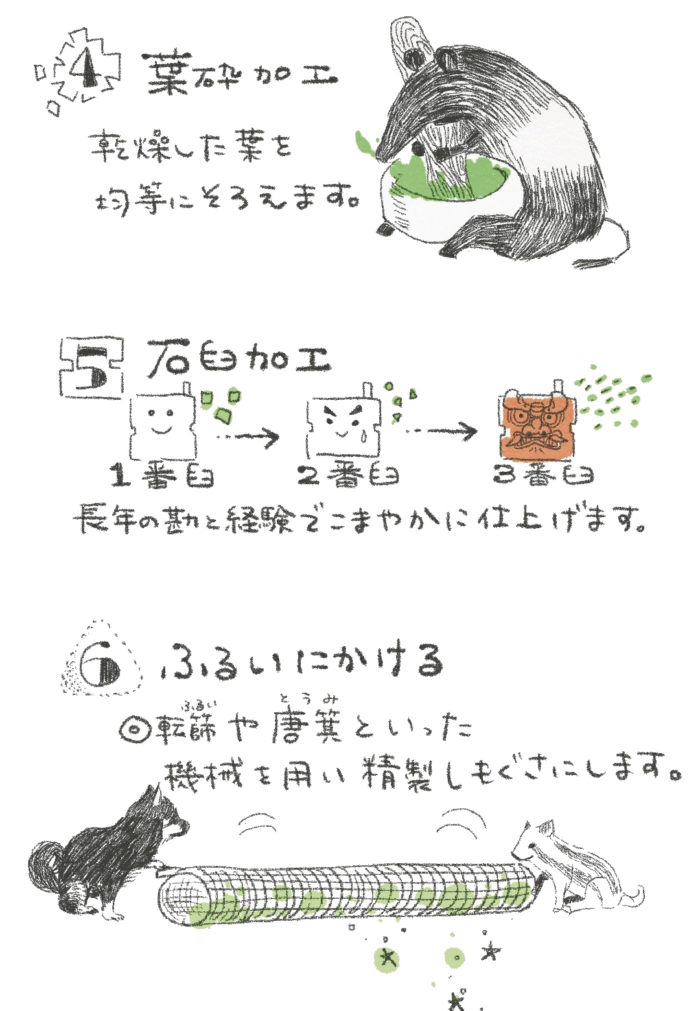 4 葉砕加工
乾燥した葉を
均等にそろえます。
5 石臼加工
1番臼 2番臼 3番臼
長年の勘と経験でこまやかに仕上げます。
6 ふるいにかける
ふるい とうみ
◎転篩や唐箕といった
機械を用い精製しもぐさにします。